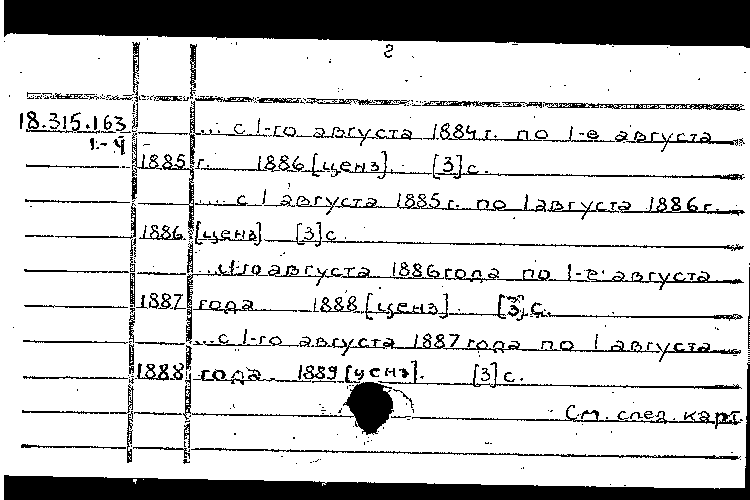 2
18.315.163 ... с 1-го августа 1884 г. по 1-е августа
1-4
1885 г. 1886 [ценз]. [3] с.
... с 1 августа 1885 г. по 1 августа 1886 г.
1886 [ценз] [3] с.
августа 1886 года по 1-е августа
1887 года 1888 [ценз]. [3] с.
... с 1-го августа 1887 года по 1 августа
1888 года. 1889 [ценз]. [3] с.
См. след. карт.